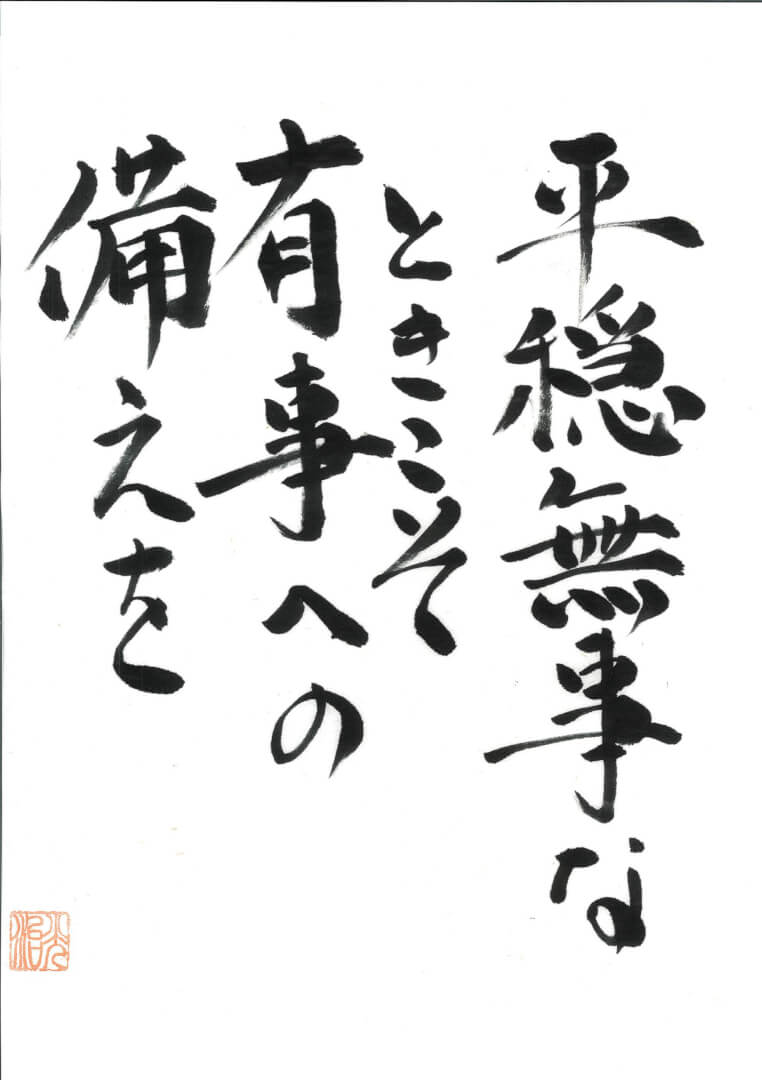 平穏無事な
ときこそ
有事への
備えを